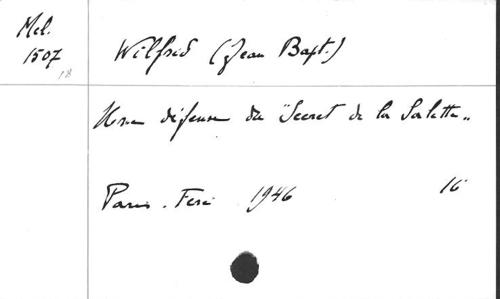 Mel.
1507
18
Wilfrid (Jean Bapt.)
Une défense du "Secret de la Salette"
Paris. 1946 16